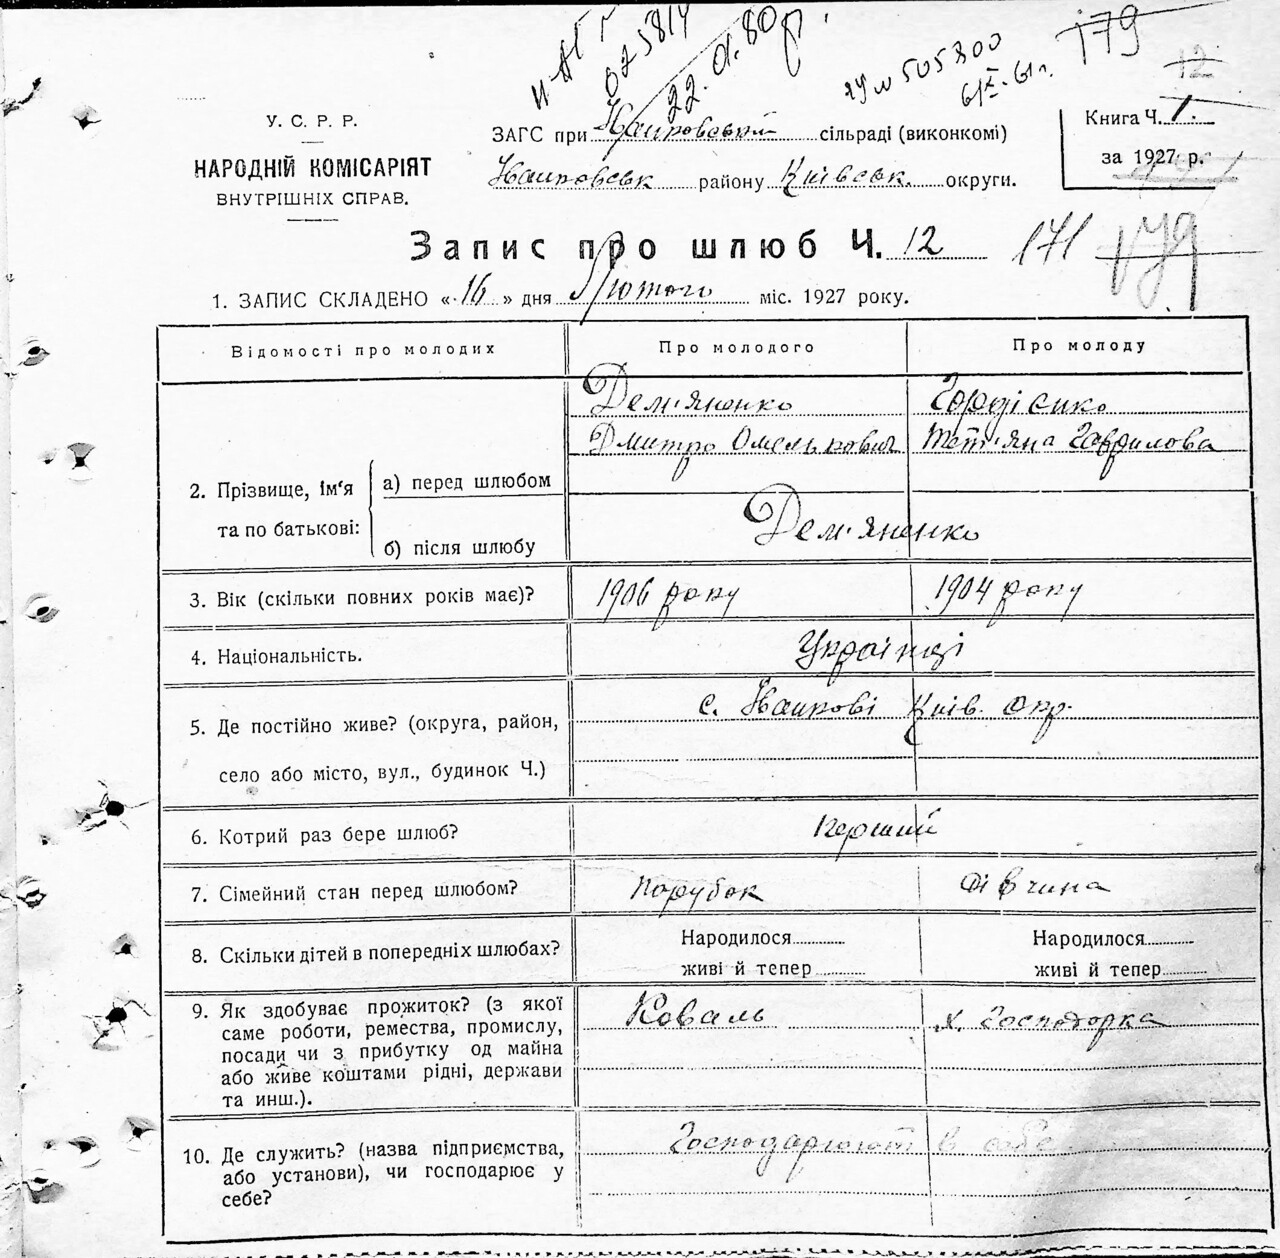 025814
22.01.80р.
ЯУ № 505300
6/X-61 г.
179
12
У. С. Р. Р.
НАРОДНІЙ КОМІСАРІЯТ
ВНУТРІШНІХ СПРАВ.
ЗАГС при сільраді (виконкомі)
району Київськ. округи.
Книга Ч. 1.
за 1927 р.
Запис про шлюб Ч. 12
171
179
1. ЗАПИС СКЛАДЕНО «16» дня Лютого міс. 1927 року.
Відомості про молодих Про молодого Про молоду
Дем'яненко Гордієнко
Дмитро Омелькович Тет'яна Гаврилова
2. Прізвище, ім'я та по батькові:
а) перед шлюбом
б) після шлюбу
Дем'яненко
3. Вік (скільки повних років має)? 1906 року 1904 року
4. Національність. Українці
5. Де постійно живе? (округа, район, с. Київ. окр.
село або місто, вул., будинок Ч.)
6. Котрий раз бере шлюб? Перший
7. Сімейний стан перед шлюбом? Парубок Дівчина
8. Скільки дітей в попередніх шлюбах? Народилося Народилося
живі й тепер живі й тепер
9. Як здобуває прожиток? (з якої Коваль х. Господорка
саме роботи, ремества, промислу,
посади чи з прибутку од майна
або живе коштами рідні, держави
та инш.).
10. Де служить? (назва підприємства, Господарюют в себе
або установи), чи господарює у
себе?